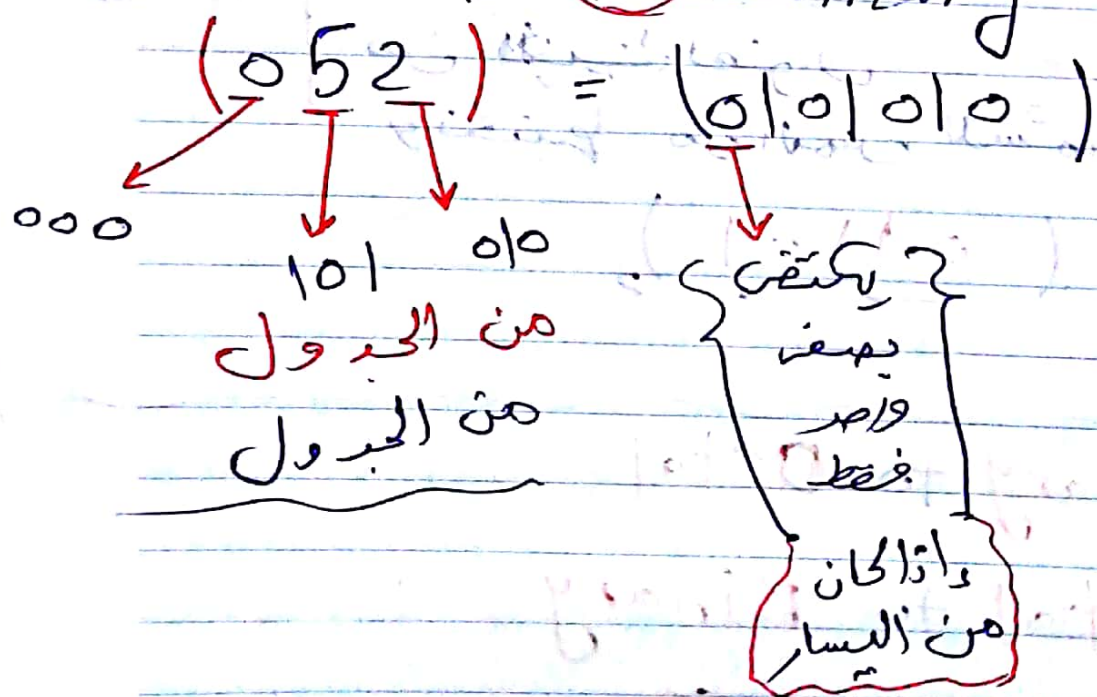 (052) = (0101010)
000
101
010
من الجدول
من الجدول
يكتفى
بصفر
واحد
فقط
واذا كان
من اليسار